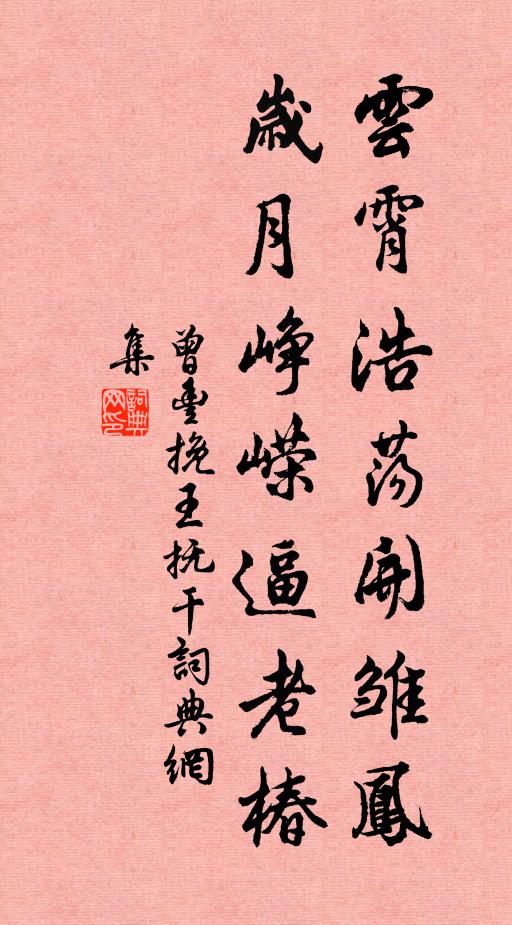 雲霄浩荡開雏鳳
歲月峥嵘逼老椿
曾豊挽王抚干詞典網
集
詞典
网印